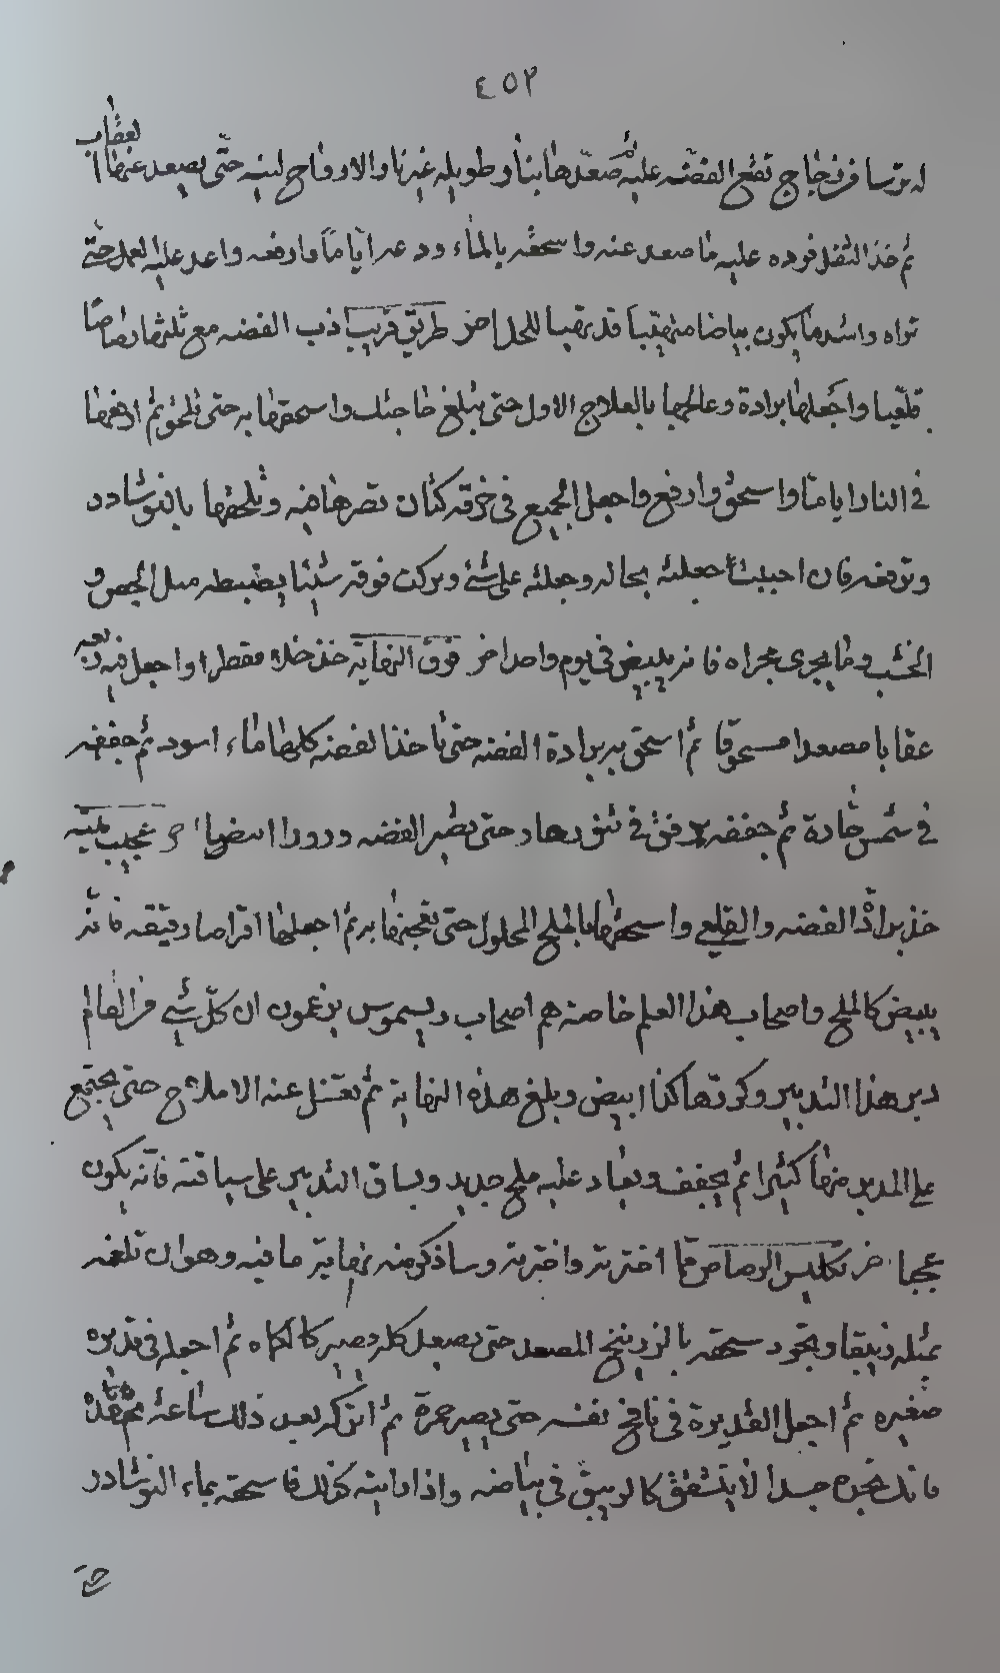 ٤٥٢
له برسا من زجاج تضع الفضه عليه ثم صعدها بنار طويله غير نار الارواح لينه حتى يصعد عنها العقاب
ثم خذ الثفل فرده عليه ما صعد عنه واسحقه بالماء ودعه اياما وارفعه واعد عليه العمل حتى
تراه واشد ما يكون بياضا منهيبا قد تهيا للحل اخر طريق قريب اذب الفضه مع ثلثها رصاصا
قلعيا واجعلها برادة وعالجها بالعلاج الاول حتى يبلغ حاجتك واسحقها به حتى تلحق ثم ادفنها
في النار اياما واسحق وارفع واجعل الجميع في خرقه كتان تصرها فيه وتلحقها بالنوشادر
وترفعه فان احببت جعلته بحاله وجعلته على شئ وتركت فوقه شيئا يضبطه مثل الجص و
الخشب وما يجرى مجراه فانه يبيض في يوم واحد اخر فوق النهاية خذ خلا مقطرا واجعل فيه ربعه
عقابا مصعدا مسحوقا ثم اسحق به برادة الفضه حتى تاخذ الفضه كلها ماء اسود ثم جففه
في شمس حارة ثم جففه برفق في تنور هاد حتى يصير الفضه درورا ابيضا اخر عجيب لميه
خذ برادة الفضه والقلعي واسحقها بالملح المحلول حتى تعجنها به ثم اجعلها اقراصا رقيقه فانه
يبيض كالملح واصحاب هذا العلم خاصة هم اصحاب ديسموس يزعمون ان كل شئ من العالم
دبر هذا التدبير وكررتها كذا ابيض وبلغ هذه النهاية ثم تغسل عنه الاملاح حتى يجتمع
على المدبر منها كثيرا ثم يجفف ويعاد عليه ملح جديد ويساق التدبير على سياقته فانه يكون
عجبا اخر تكليس الرصاص مما اخترته واختبرته وساذكر منه نهاية ما فيه وهو ان تلغمه
بمثله زيبقا ويجود سحقه بالزرنيخ المصعد حتى يصعد كله ويصير كالحكاه ثم اجعله في قديره
صغيره ثم اجعل القديرة في نافخ نفسه حتى يصير حمرة ثم اتركه بعد ذلك ساعة ثم خذه
فانك تجده جسدا لا يتشقق كالزيبق في بياضه واذا رايته كذلك فاسحقه بماء النوشادر
حتى